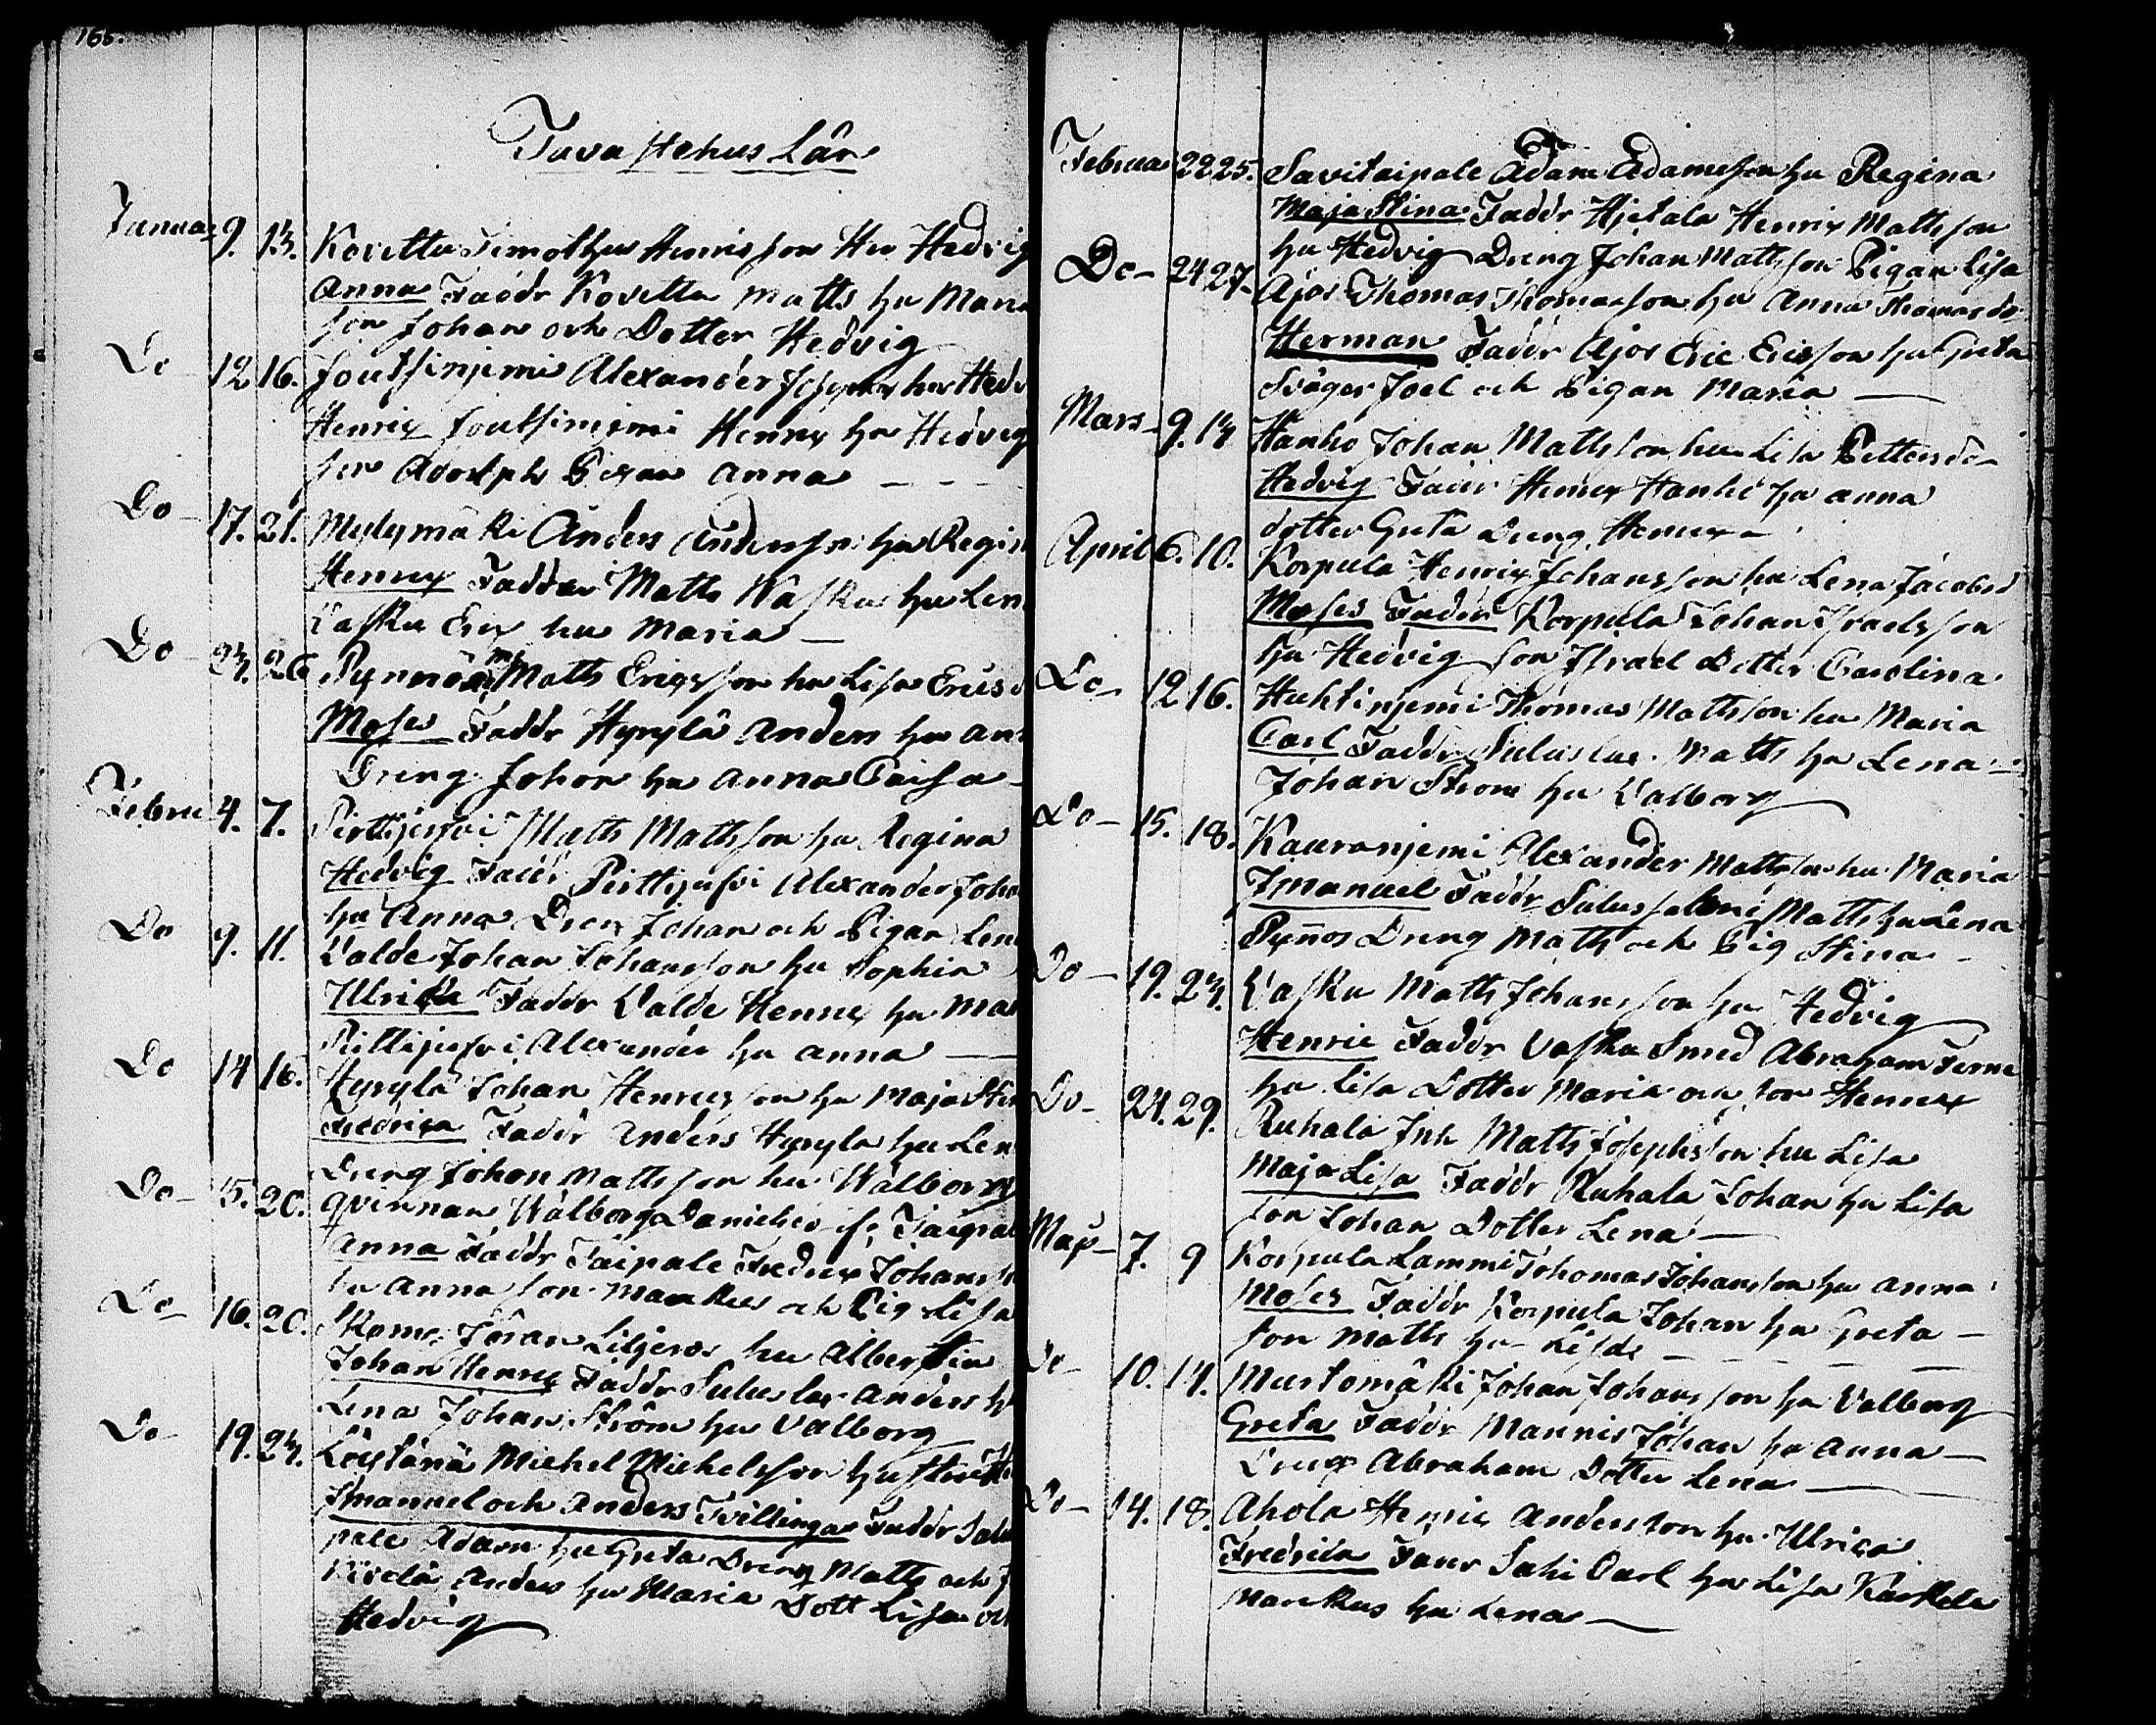 166.
Tavastehus Län
Januar 9. 13. Kosettu Timotheus Henrisson Hu Hedvig
Anna Faddr Kosettu Matts hu Maria
son Johan och Dotter Hedvig
Do 12 16. Joutsinjemi Alexander hu Hedv
Henrix Joutsinjemi Henrix hu Hedvig
son Adolph Pigan Anna
Do 17. 21. Myllymäki Anders Andersson hu Regin
Henrix Faddrar Matts Wasku hu Len
Vasku Erix hu Maria
Do 23. 26 Matts Erixsson hu Lisa Erics d
Moses Faddr Hyrylä Anders hu An
Dreng Johan hu Anna Caisa
Febru 4. 7. Pirttijerfvi Matts Mattsson hu Regina
Hedvig Faddr Pirttijerfvi Alexander Joha
hu Anna Dren Johan och Pigan Len
Do 9. 11. Valde Johan Johansson hu Sophia
Ulrika Faddr Valde Henrix hu Mar
Pirttijerfvi Alexander hu Anna
Do 14 16. Hyrylä Johan Henrixsson hu Maja Stin
Fredrica Faddr Anders Hyrylä hu Len
Dreng Johan Mattsson hu Walborg
Do 15. 20. qvinnan Walborg Danielsd f. Taipal
Anna Faddr Taipale Fredrix Johanss
hu Anna son Markus och Pig Lisa
Do 16. 20. Skom. Jöran Liljeros hu Albertina
Johan Henrix Faddr Anders h
Lena Johan Ström hu Valborg
Do 19. 23. Löytänä Michel Michelsson hustru
Imanuel och Anders Tvillingar Faddr Sav
pale Adam hu Greta Dreng Matts och
Anders hu Maria Dott Lisa och
Hedvig
Februa 22 25. Savitaipale Adam Adamsson hu Regina
Maja Stina Faddr Hjetala Henrix Mattsson
hu Hedvig Dreng Johan Mattsson Pigan Lisa
Do 24 27. Ajos Thomas Thomasson hu Anna Thomasdo
Herman Faddr Ajos Eric Ericsson hu Greta
Svåger Joel och Pigan Maria
Mars 9. 13 Hanho Johan Mattsson hu Lisa Pettersdo
Hedvig Faddr Henrix Hanho hu Anna
dotter Greta Dreng Henrix
April 6. 10. Korpula Henrix Johansson hu Lena Jacobsd
Moses Faddr Korpula Johan Israelsson
hu Hedvig son Israel Dotter Carolina
Do 12 16. Huhtinjemi Thomas Mattsson hu Maria
Carl Faddr Matts hu Lena
Johan Ström hu Valborg
Do 15. 18. Kauranjemi Alexander Mattsson hu Maria
Imanuel Faddr Matts hu Lena
Dreng Matts och Pig Stina
Do 19. 23. Vasku Matts Johansson hu Hedvig
Henric Faddr Vasku Smed Abraham
hu Lisa Dotter Maria och son Henrix
Do 24. 29. Ruhala Inh Matts Josephsson hu Lisa
Maja Lisa Faddr Ruhala Johan hu Lisa
son Johan Dotter Lena
Maji 7. 9 Korpula Lammi Thomas Johansson hu Anna
Moses Faddr Korpula Johan hu Greta
son Matts hu
Do 10. 14. Mustomäki Johan Johansson hu Valborg
Greta Faddr Mannis Johan hu Anna
Dreng Abraham Dotter Lena
Do 14. 18. Ahola Henric Andersson hu Ulrica
Fredrica Faddr Sahi Carl hu Lisa
Markus hu Lena